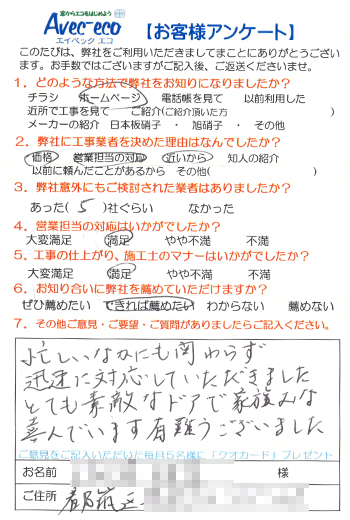 窓からエコをはじめよう
Avec-eco
エイベック エコ
【お客様アンケート】
このたびは、弊社をご利用いただきましてまことにありがとうござい
ます。お手数ではございますがご記入後、ご返送くださいませ。
1．どのような方法で弊社をお知りになりましたか？
チラシ ホームページ 電話帳を見て 以前利用した
近所で工事を見て ご紹介(ご紹介頂いた方 )
メーカーの紹介 日本板硝子 ・ 旭硝子 ・ その他
2．弊社に工事業者を決めた理由はなんですか？
価格 営業担当の対応 近いから 知人の紹介
以前に頼んだことがあるから その他( )
3．弊社意外にもご検討された業者はありましたか？
あった( 5 )社ぐらい なかった
4．営業担当の対応はいかがでしたか？
大変満足 満足 やや不満 不満
5．工事の仕上がり、施工士のマナーはいかがでしたか？
大変満足 満足 やや不満 不満
6．お知り合いに弊社を薦めていただけますか？
ぜひ薦めたい できれば薦めたい わからない 薦めない
7．その他ご意見・ご要望・ご質問がありましたらご記入ください。
忙しいなかにも関わらず
迅速に対応していただきました
とても素敵なドアで家族みな
喜んでいます有難うございました
ご意見をご記入いただいた毎月5名様に「クオカード」プレゼント
お名前 様
ご住所 都筑区